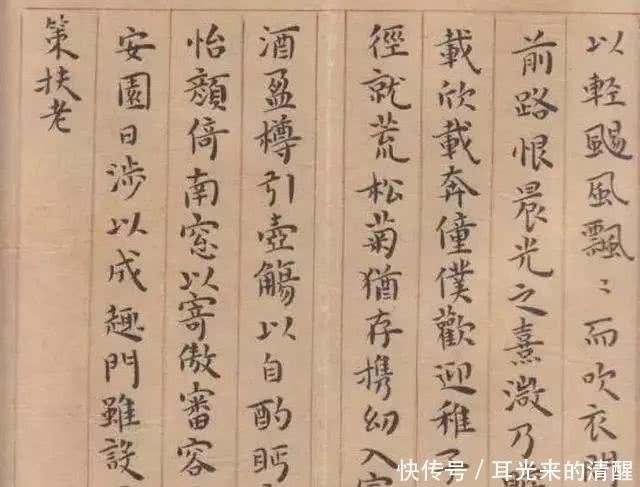 以輕颺風飄〻而吹衣
前路恨晨光之熹微乃
載欣載奔僮僕歡迎稚子
徑就荒松菊猶存携幼入室
酒盈樽引壺觴以自酌眄
怡顏倚南窓以寄傲審容
安園日涉以成趣門雖設
策扶老
快传号 / 耳光来的清醒